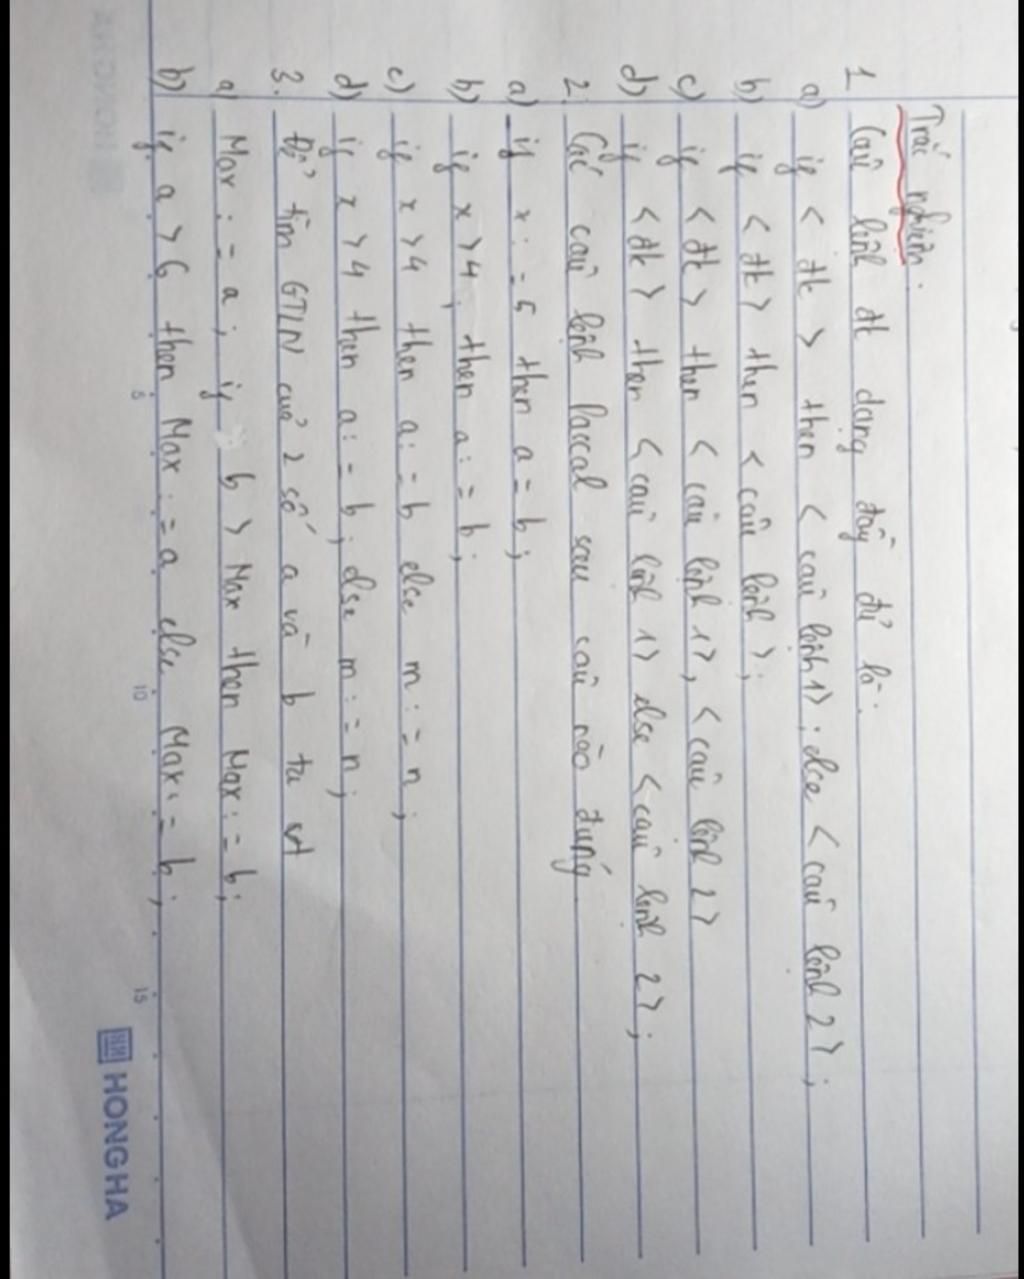 Trắc nghiệm.
1 Câu lệnh đk dạng đầy đủ là:
a) if < đk > then < câu lệnh 1>; else < câu lệnh 2>;
b) if < đk> then < câu lệnh >;
c) if < đk> then < câu lệnh 1>, < câu lệnh 2>
d) if < đk > then < câu lệnh 1> else < câu lệnh 2>;
2. Các câu lệnh Pascal sau câu nào đúng
a) if x : = 5 then a = b;
b) if x > 4; then a : = b;
c) if x > 4 then a : = b else m : = n;
d) if x > 4 then a : = b; else m : = n;
3. Để tìm GTLN của 2 số a và b ta
a) Max : = a; if b > Max then Max : = b;
b) if a > 6 then Max : = a else Max : = b;
5 10 15
HONG HA